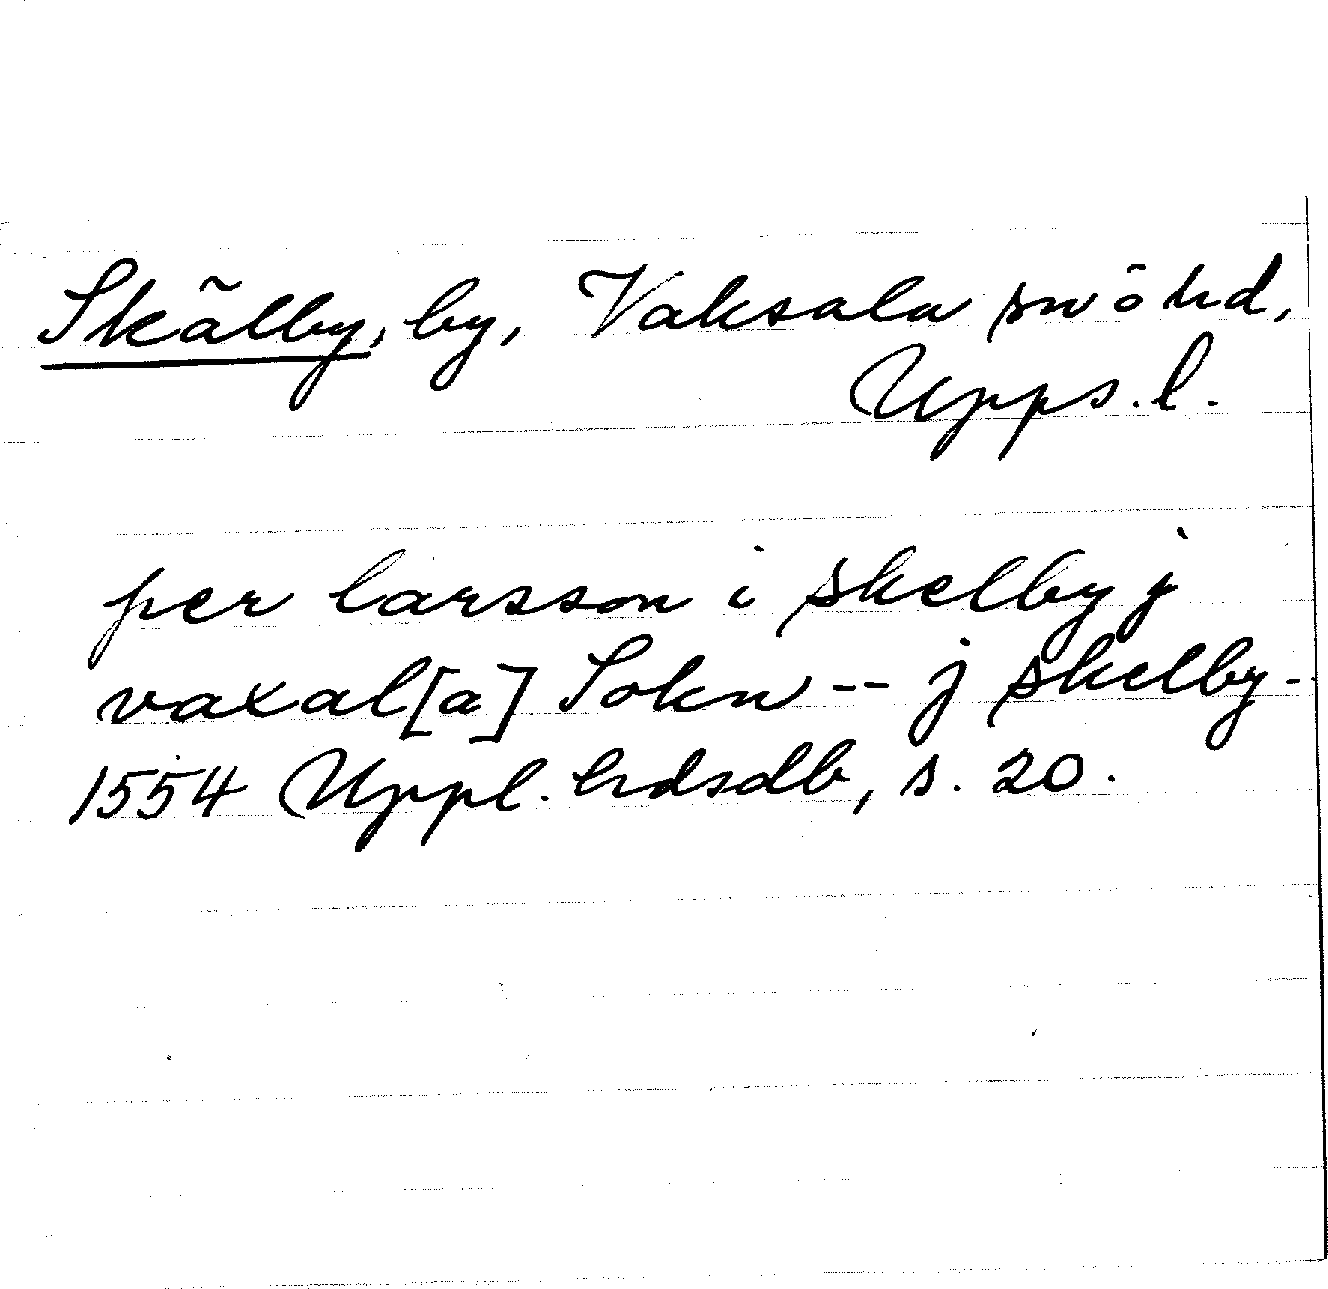 Skälby, by, Vaksala sn ö hd,
Upps. l.
per larsson i skelby j
vaxal[a] Sokn -- j skelby -
1554 Uppl. hdsdb, s. 20.